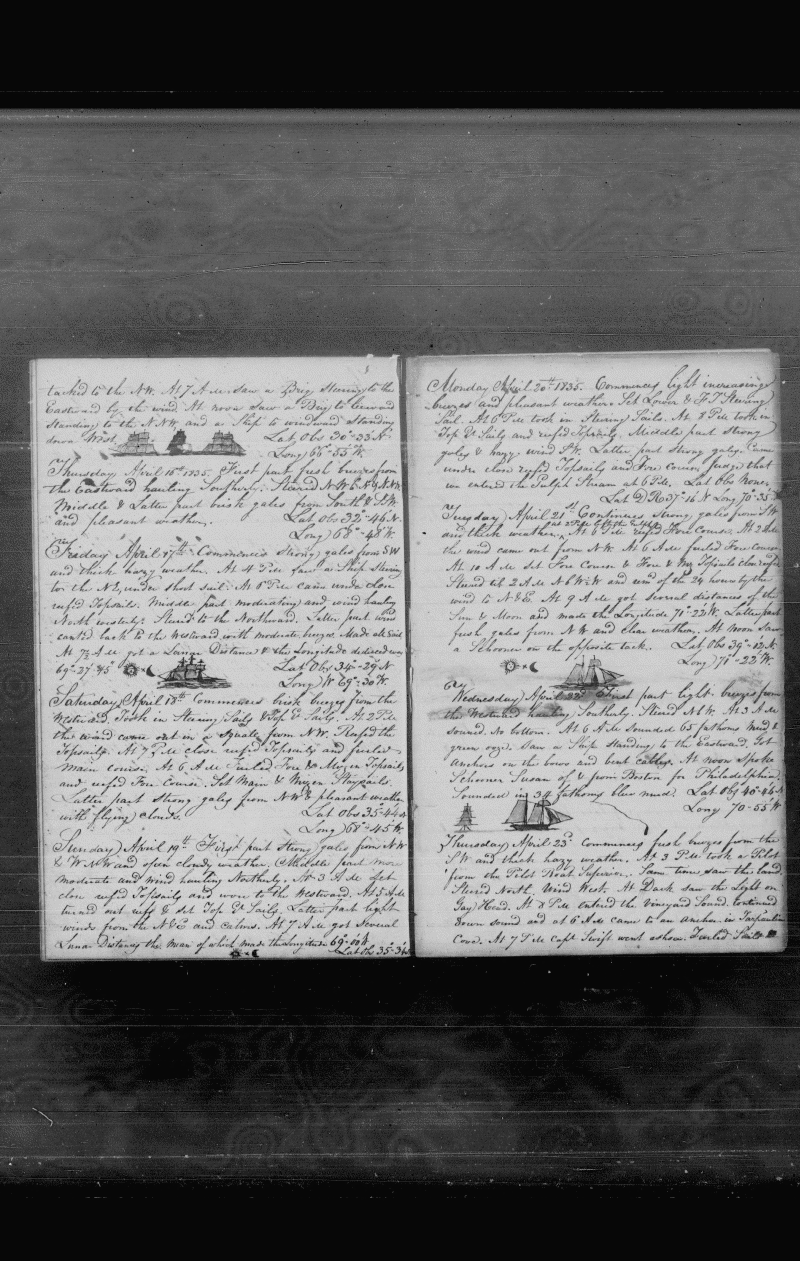 tacked to the N.W. At 7 A M. saw a Brig Steering to the
Eastward by the wind. At noon saw a Brig to leeward
standing to the N N W, and a Ship to windward standing
down West. Lat Obs 30°-33 N
Long 66°-55 W.
Thursday, April 16th 1835. First part fresh breezes from
the Eastward hauling Southerly. Steered N.W. & N N W
Middle & Latter part brisk gales from South & S.W.
and pleasant weather. Lat Obs 32°-46 N.
Long 68°-48 W.
Friday April 17th Commences strong gales from SW
and thick hazy weather. At 4 P M saw a Ship Steering
to the N E, under short sail. At 6 P M came under close
reefed Topsails. Middle part moderating and wind hauling
North westerly. Steered to the Northward. Latter part wind
canted back to the Westward with moderate breezes. Made all Sail
At 7½ A M got a Lunar Distance & the Longitude deduced was
69°-27-45 Lat Obs 34°-29 N
Long W 69°-30 W.
Saturday, April 18th Commences brisk breezes from the
Westward. Took in Steering Sails & Top Gt Sails. At 2 P M
the wind came out in a Squall from N.W. Reefed the
Topsails. At 7 P M close reefed Topsails and furled
main course. At 6 A M Furled Fore & Mizen Topsails
and reefed Fore Course. Set Main & Mizen Staysails
Latter part Strong gales from N W & pleasant weather
with flying clouds. Lat Obs 35-44 N
Long 68°-45 W.
Sunday April 19th First part Strong gales from N W
& W N W and open cloudy weather. Middle part more
moderate and wind hauling Northerly. At 3 A M set
close reefd Topsails and wore to the Westward. At 5 A M
turned out reefs & set Top Gt Sails. Latter part light
winds from the N & E and calms. At 7 A M got several
Lunar Distances the mean of which made the Longitude 69°-00 W
Lat Obs 35°-36
Monday April 20th 1835. Commences light increasing
breezes and pleasant weather. Set Lower & F. T Steering
Sail. At 6 P M took in Steering Sails. At 8 P M took in
Top Gt Sails and reefed Topsails. Middle part strong
gales & hazy wind SW. Latter part strong gales. Came
under close reefd Topsails and Fore Course, judge that
we entered the Gulph Stream at 6 P M. Lat Obs None.
Lat D Ro 37°-16 N Long 70°-35 W
Tuesday) April 21st Continues strong gales from SW
and thick weather. At 6 P M reefd Fore Course. At 2 A M
the wind came out from N.W. At 6 A M furled Fore Course
At 10 A M set Fore Course & Fore & Mizn Topsails close reefd
Steerd til 2 A M N b W & W and end of the 24 hours by the
wind to N & E. At 9 A M got several distances of the
Sun & Moon and made the Longitude 71°-22 W. Latter part
fresh gales from N W and clear weather. At noon saw
a Schooner on the opposite tack. Lat Obs 39°-12 N
Long 71°-22 W.
Wednesday) April 22d First part light breezes from
the Westward hauling Southerly. Steered N & W. At 3 A M
sound. No bottom. At 6 A M sounded 65 fathoms mud &
green ooze. Saw a Ship standing to the Eastward. Got
anchors on the bows and bent cables. At noon Spoke
Schooner Susan of & from Boston for Philadelphia.
Sounded in 34 fathoms blue mud. Lat Obs 40°-46 N
Long 70-55 W
Thursday) April 23d Commences fresh breezes from the
S W and thick hazy weather. At 3 P M took a Pilot
from the Pilot Boat Superior. Same time saw the land.
Steered North. Wind West. At Dark saw the Light on
Gay Head. At 8 P M entered the Vineyard Sound, continued
down sound and at 6 A M came to an anchor in Tarpaulin
Cove. At 7 P M Capt Swift went ashore. Furled Sails